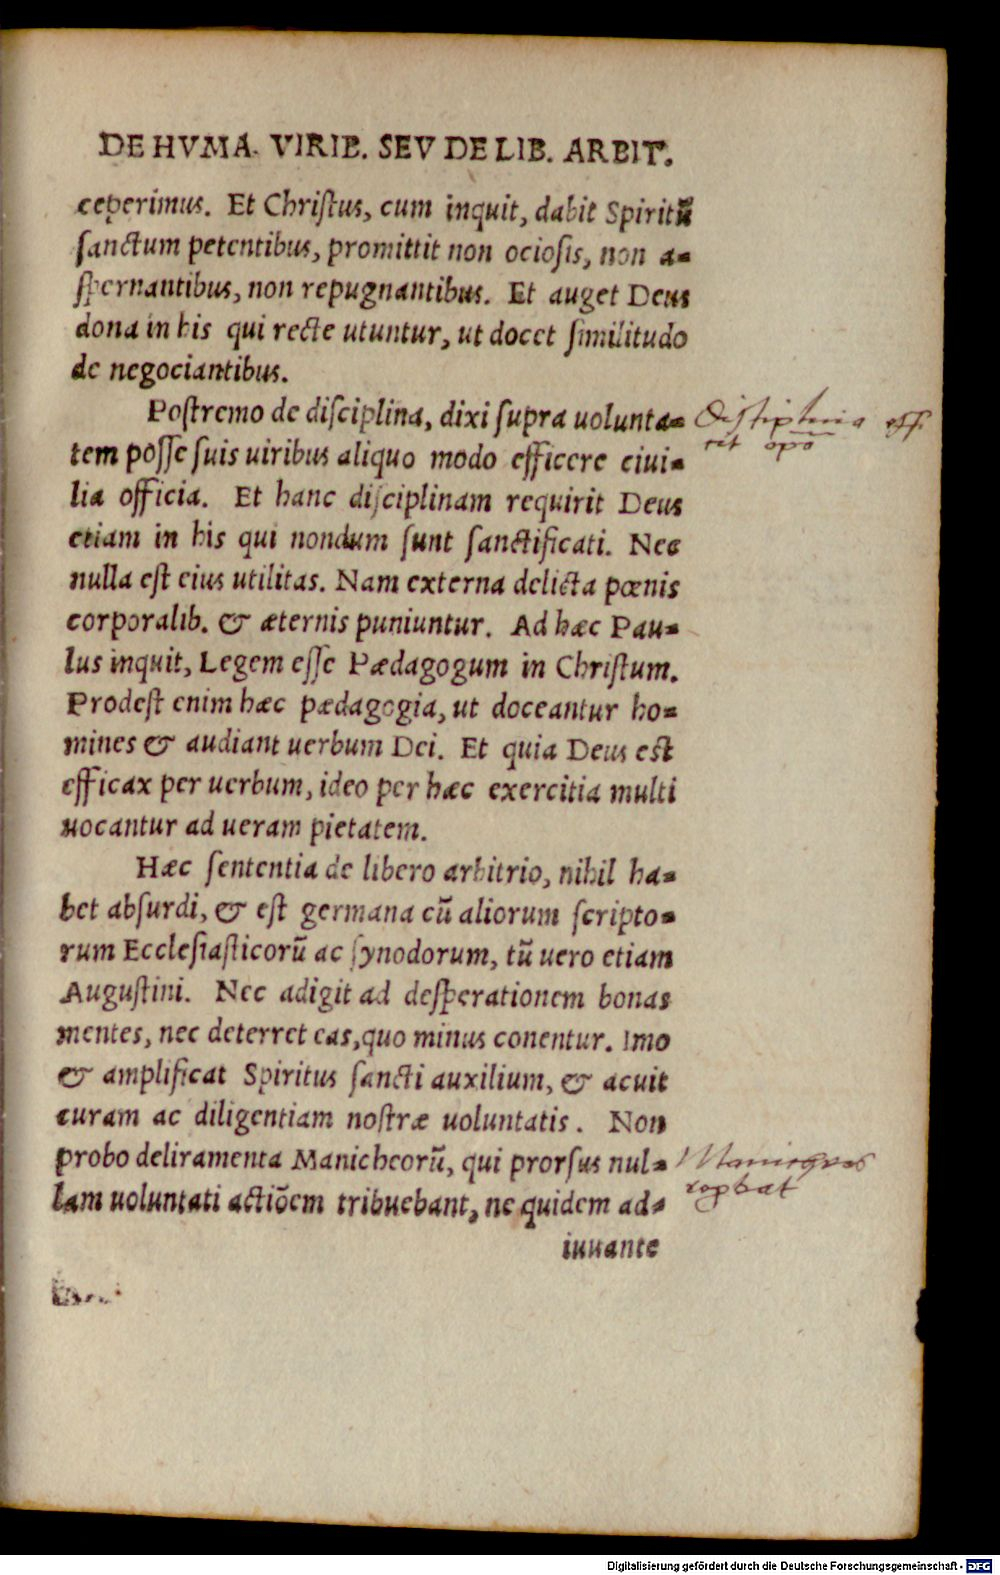 DE HVMA. VIRIB. SEV DE LIB. ARBIT.
ceperimus. Et Chriſtus, cum inquit, dabit Spiritũ
ſanctum petentibus, promittit non ocioſis, non a-
ſpernantibus, non repugnantibus. Et auget Deus
dona in his qui recte utuntur, ut docet ſimilitudo
de negociantibus.
Poſtremo de diſciplina, dixi ſupra uolunta-
tem poſſe ſuis uiribus aliquo modo efficere ciui-
lia officia. Et hanc diſciplinam requirit Deus
etiam in his qui nondum ſunt ſanctificati. Nec
nulla eſt eius utilitas. Nam externa delicta pœnis
corporalib. & æternis puniuntur. Ad hæc Pau-
lus inquit, Legem eſſe Pædagogum in Chriſtum.
Prodeſt enim hæc pædagogia, ut doceantur ho-
mines & audiant uerbum Dei. Et quia Deus est
efficax per uerbum, ideo per hæc exercitia multi
uocantur ad ueram pietatem.
Hæc ſententia de libero arbitrio, nihil ha-
bet abſurdi, & eſt germana cũ aliorum ſcripto-
rum Eccleſiaſticorũ ac ſynodorum, tũ uero etiam
Auguſtini. Nec adigit ad deſperationem bonas
mentes, nec deterret eas, quo minus conentur. Imo
& amplificat Spiritus ſancti auxilium, & acuit
curam ac diligentiam noſtræ uoluntatis. Non
probo deliramenta Manicheorũ, qui prorſus nul-
lam uoluntati actiõem tribuebant, ne quidem ad-
iuuante
Digitalisierung gefördert durch die Deutsche Forschungsgemeinschaft - DFG